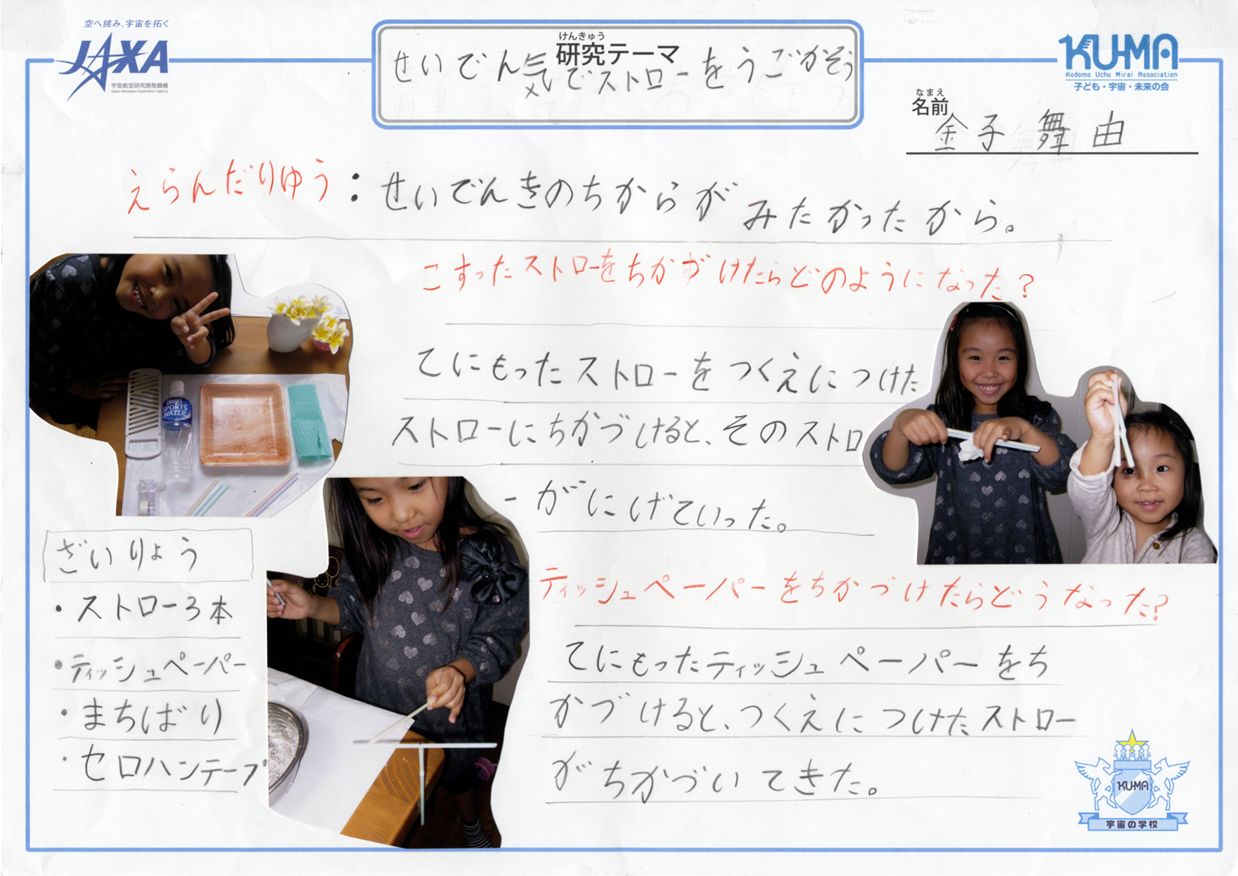 空へ挑み、宇宙を拓く
JAXA
宇宙航空研究開発機構
Japan Aerospace Exploration Agency
けんきゅう
研究テーマ
せいでん気でストローをうごかそう
KU-MA
Kodomo Uchu Mirai Association
子ども・宇宙・未来の会
なまえ
名前
金子 舞由
えらんだりゆう:せいでんきのちからがみたかったから。
こすったストローをちかづけたらどのようになった?
てにもったストローをつくえにつけた
ストローにちかづけると、そのストロ
ーがにげていった。
ざいりょう
・ストロー3本
・ティッシュペーパー
・まちばり
・セロハンテープ
ティッシュペーパーをちかづけたらどうなった?
てにもったティッシュペーパーをち
かづけると、つくえにつけたストロー
がちかづいてきた。
SPORTS
WATER
KU-MA
宇宙の学校